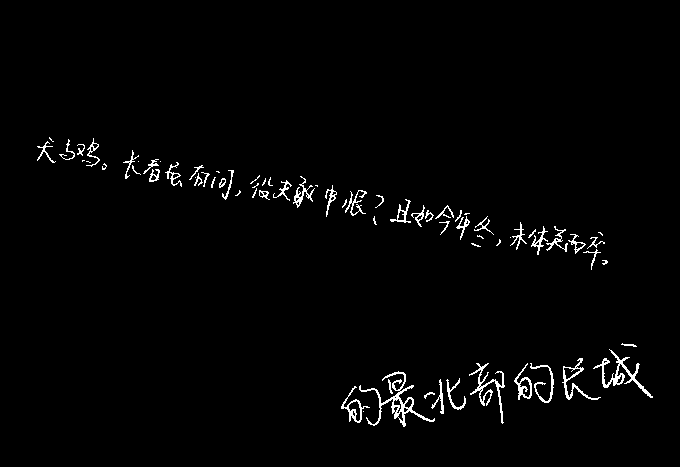 犬与鸡。长者虽有问,役夫敢申恨?且如今年冬,未休关西卒。
的最北部的长城